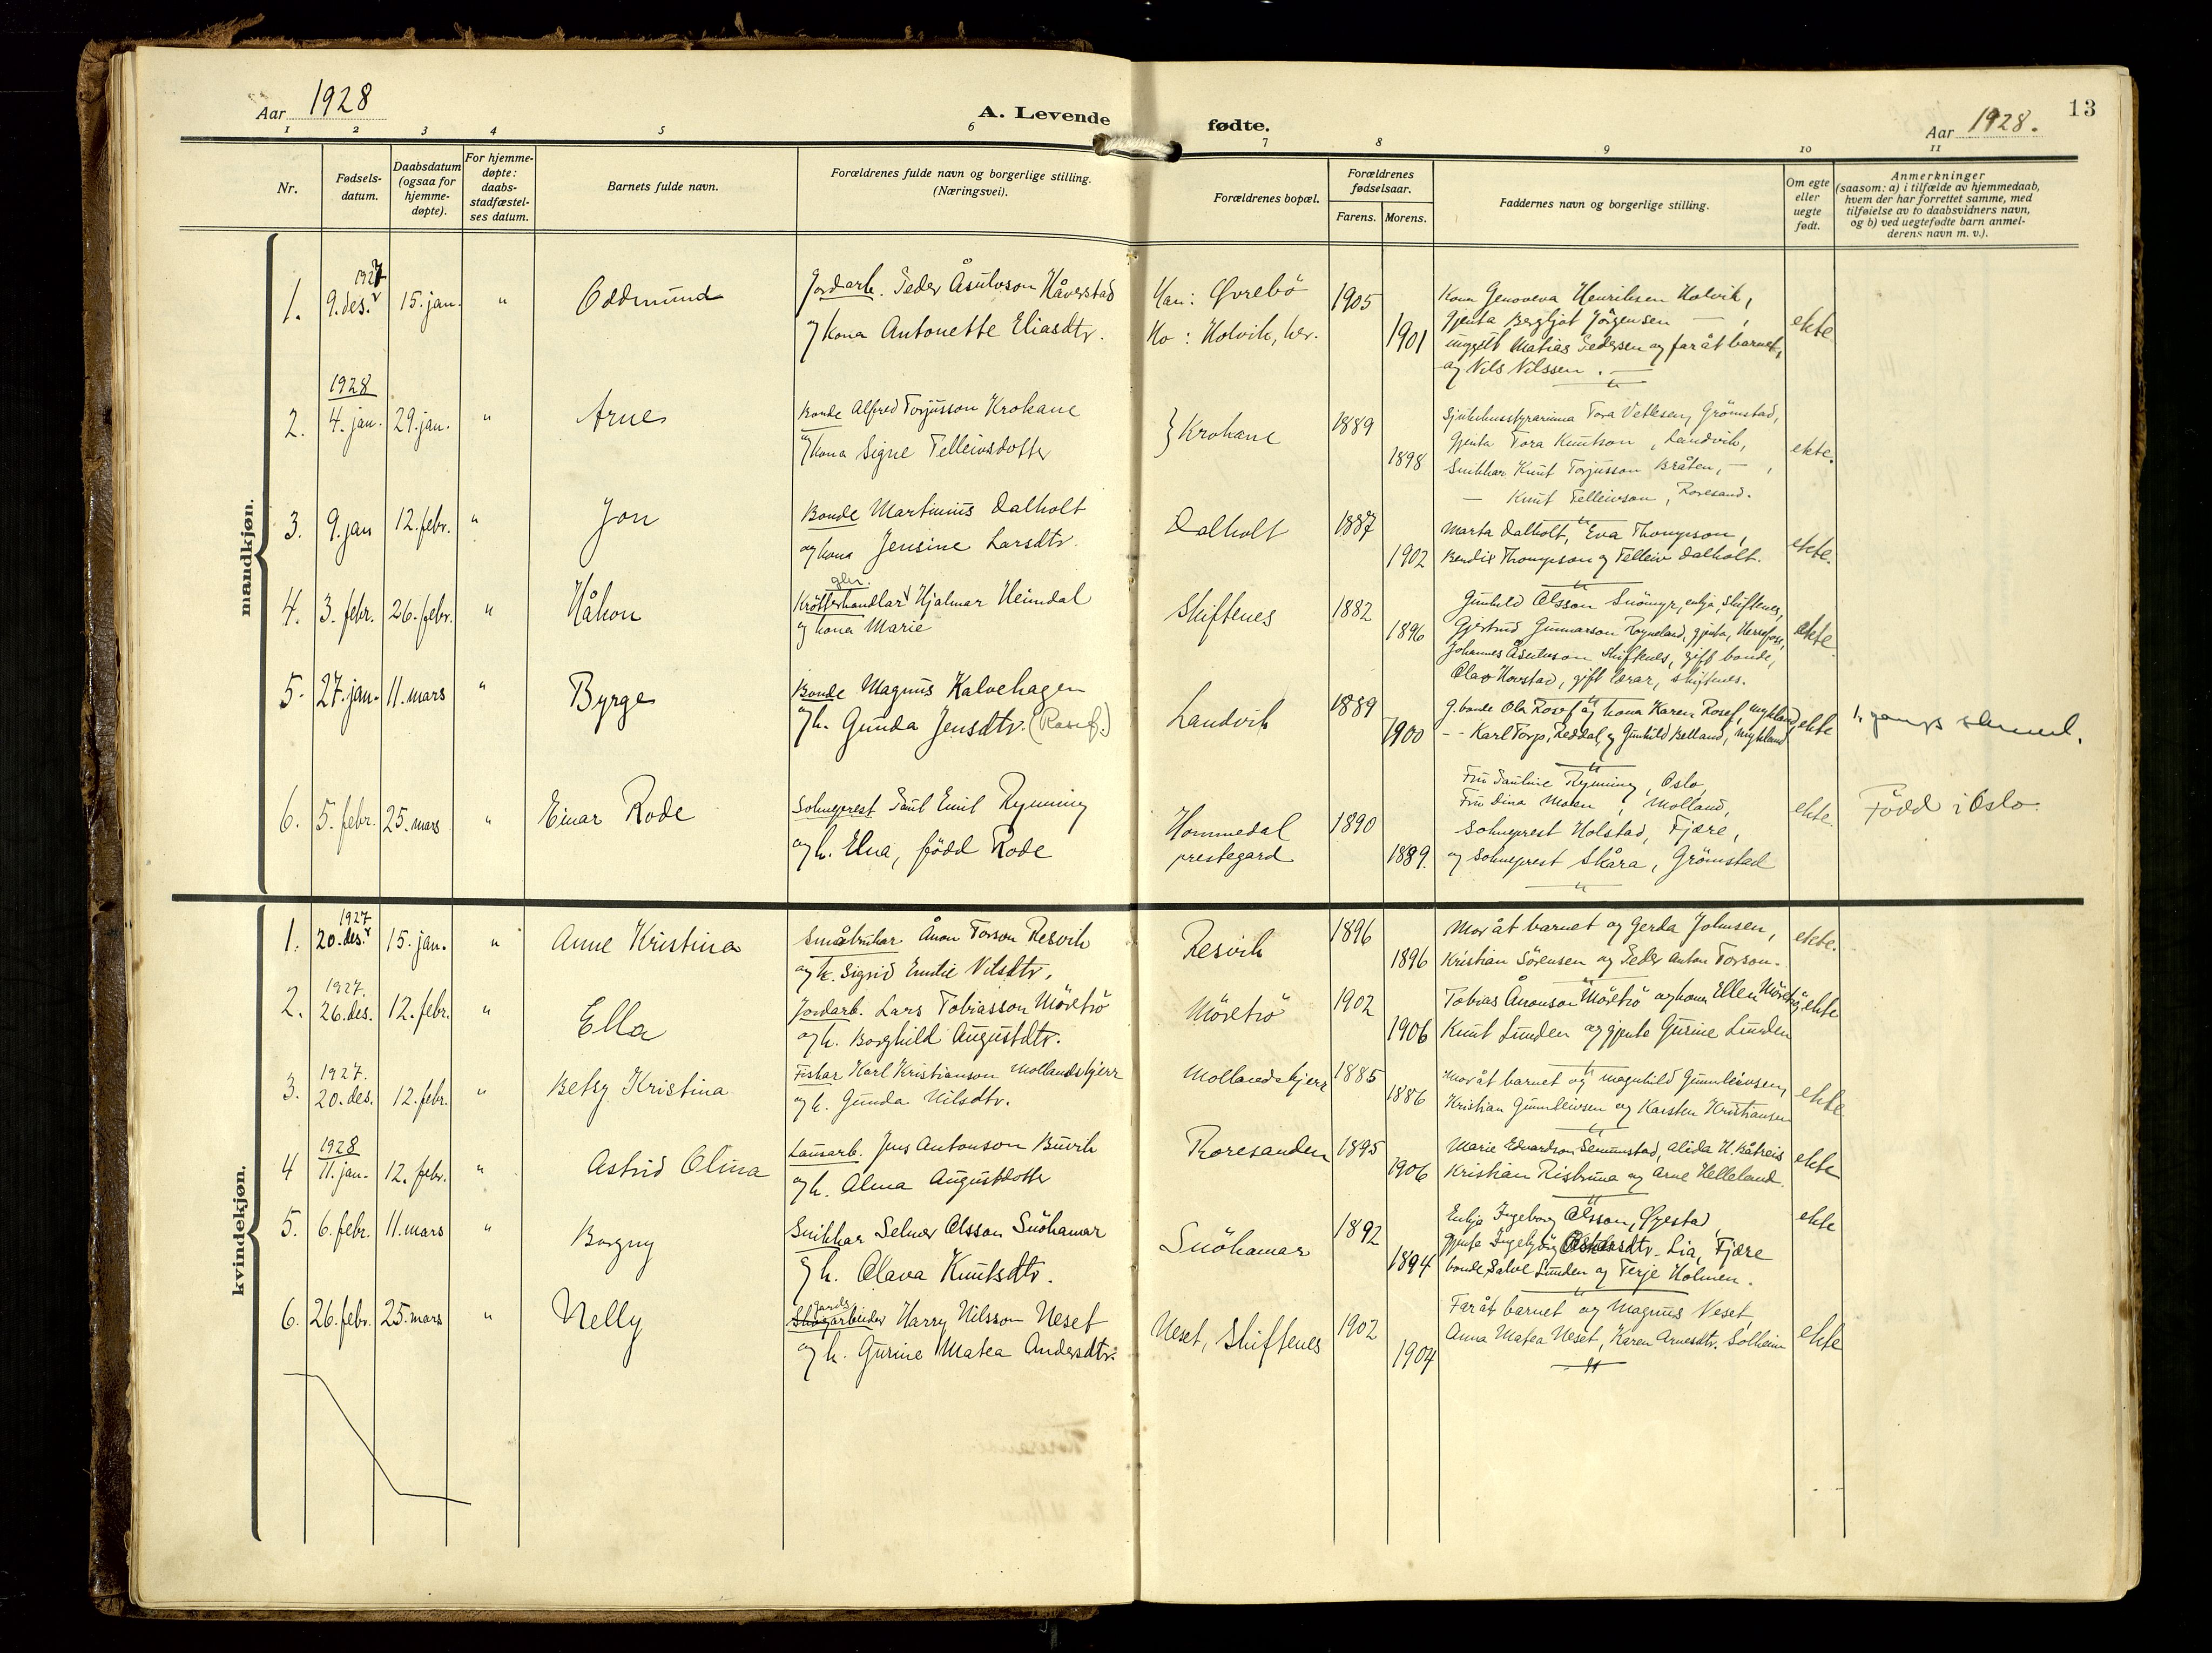 Aar 1928
A. Levende fødte.
Aar 1928.
13
1 2 3 4 5 6 7 8 9 10 11
Nr.
Fødsels-
datum.
Daabsdatum
(ogsaa for
hjemme-
døpte).
For hjemme-
døpte:
daabs-
stadfæstel-
ses datum.
Barnets fulde navn.
Forældrenes fulde navn og borgerlige stilling.
(Næringsvei).
Forældrenes bopæl.
Forældrenes
fødselsaar.
Farens. Morens.
Faddernes navn og borgerlige stilling.
Om egte
eller
uegte
født.
Anmerkninger
(saasom: a) i tilfælde av hjemmedaab,
hvem der har forrettet samme, med
tilføielse av to daabsvidners navn,
og b) ved uegtefødte barn anmel-
derens navn m. v.).
mandkjøn.
1927
1. 9. des. 15. jan. " Oddmund
Jordarb. Peder Åsulvson Håverstad
og kona Antonette Eliasdtr.
Han: Øvrebö
Ho: Holvik, her.
1905
1901
Kona Genoveva Henriksen Holvik,
gjenta Bergljot Jörgensen — ,
ungkall Matias Pedersen og far åt barnet,
og Nils Nilssen. —
ekte
1928
2. 4. jan. 29. jan. " Arne
Bonde Alfred Torjusson Krokane
og kona Signe Telleivsdotter
} Krokane
1889
1898
Sjukehusstyrarinna Tora Vetlesen, Grömstad,
gjenta Tora Knutson, Landvik,
Snikkar Knut Torjusson Bråten, — ,
— Knut Telleivson, Roresand.
ekte.
3. 9. jan 12. febr. " Jon
Bonde Martinius Dalholt
og kona Jensine Larsdtr.
Dalholt
1887
1902
Marta Dalholt, Eva Thompson,
Bendix Thompson og Telleiv Dalholt.
ekte.
4. 3. febr. 26. febr. " Håkon
Krötterhandlar Hjalmar Heimdal
og kona Marie
Skiftenes
1882
1896
Gunhild Olsson Snömyr, enkja, Skiftenes,
Gjertrud Gunnarson Rogneland, gjenta, Herefoss,
Johannes Åsulvson Skiftenes, gift bonde,
Olav Hovstad, gift lærar, Skiftenes.
ekte
5. 27. jan. 11. mars " Byrge
Bonde Magnus Kalvehagen
og k. Gunda Jensdtr. (Rosef.)
Landvik
1889
1900
g. bonde Ola Rosef og kona Karen Rosef, Mykland,
- - Karl Torp, Reddal, og Gunhild Belland, Mykland
ekte
6. 5. febr. 25. mars " Einar Rode
Sokneprest Paul Emil Rynning
og k. Elna, född Rode
Hommedal
prestegard
1890
1889.
Fru Pauline Rynning, Oslo,
Fru Dina Moen, Molland,
Sokneprest Holstad, Fjære,
og Sokneprest Skåra, Grömstad
ekte.
Född i Oslo.
kvindekjøn.
1927
1. 20. des. 15. jan. " Anne Kristina
Småbrukar Ånon Torson Resvik
og k. Sigrid Emilie Nilsdtr.
Resvik
1896
1896
Mor åt barnet og Gerda Johnsen,
Kristian Sörensen og Peder Anton Torson.
ekte.
1927.
2. 26. des. 12. febr. " Ella
Jordarb. Lars Tobiasson Möretrö
og k. Borghild Augustdtr.
Möretrö
1902
1906
Tobias Ånonson Möretrö og kona Ellen Möretrö,
Knut Lunden og gjenta Gurine Lunden
ekte
1927.
3. 20. des. 12. febr. " Betsy Kristina
Fiskar Karl Kristianson Mollandskjerr
og k. Gunda Nilsdtr.
Mollandskjerr
1885
1886
Mor åt barnet og Magnhild Gunnleivsen,
Kristian Gunnleivsen og Karsten Kristiansen
ekte
1928
4 11. jan. 12. febr. " Astrid Olina
Lausarb. Jens Antonson Buvik
og k. Alma Augustdotter
Roresanden
1895
1906
Marie Edvardson Semmstad, Alida H. Båtreis
Kristian Risbruna og Arne Helleland.
ekte
5. 6. febr. 11. mars " Borgny
Snikkar Selmer Olsson Snöhamar
og k. Olava Knutsdtr.
Snöhamar
1892
1894
Enkja Ingeborg Olsson, Øyestad,
gjenta Ingebjörg Oskarsdtr. Lia, Fjære
bonde Salve Lunden og Terje Holmen.
ekte
6. 26. febr. 25. mars " Nelly
gards
Skogarbeider Harry Nilsson Neset
og k. Gurine Matea Andersdtr.
Neset, Skiftenes
1902
1904
Far åt barnet og Magnus Neset,
Anna Matea Neset, Karen Arnesdtr. Solheim
ekte